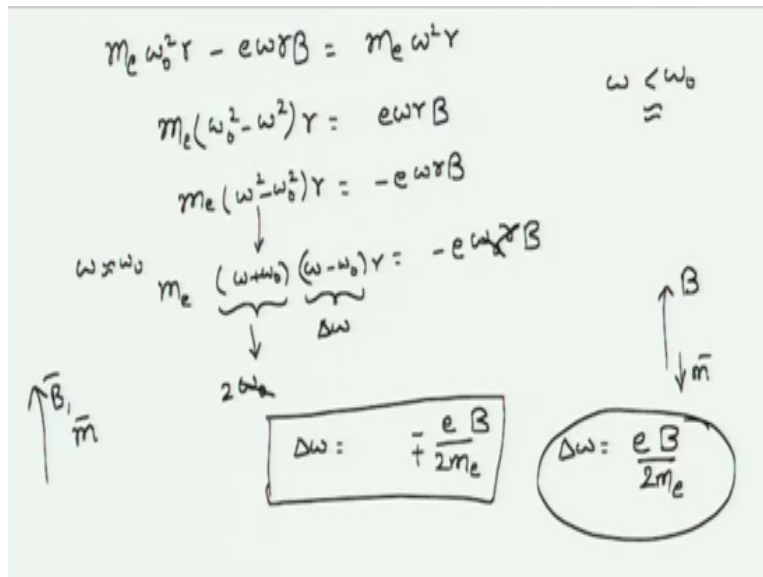 mₑ ω₀² r - e ω r B = mₑ ω² r
ω < ω₀
≈
mₑ (ω₀² - ω²) r = e ω r B
mₑ (ω² - ω₀²) r = - e ω r B
ω ≈ ω₀ mₑ (ω + ω₀) (ω - ω₀) r = - e ω₀ r B
Δω
B
2ω₀
m̄
B̄, m̄
Δω = ∓ e B / 2mₑ
Δω = e B / 2mₑ